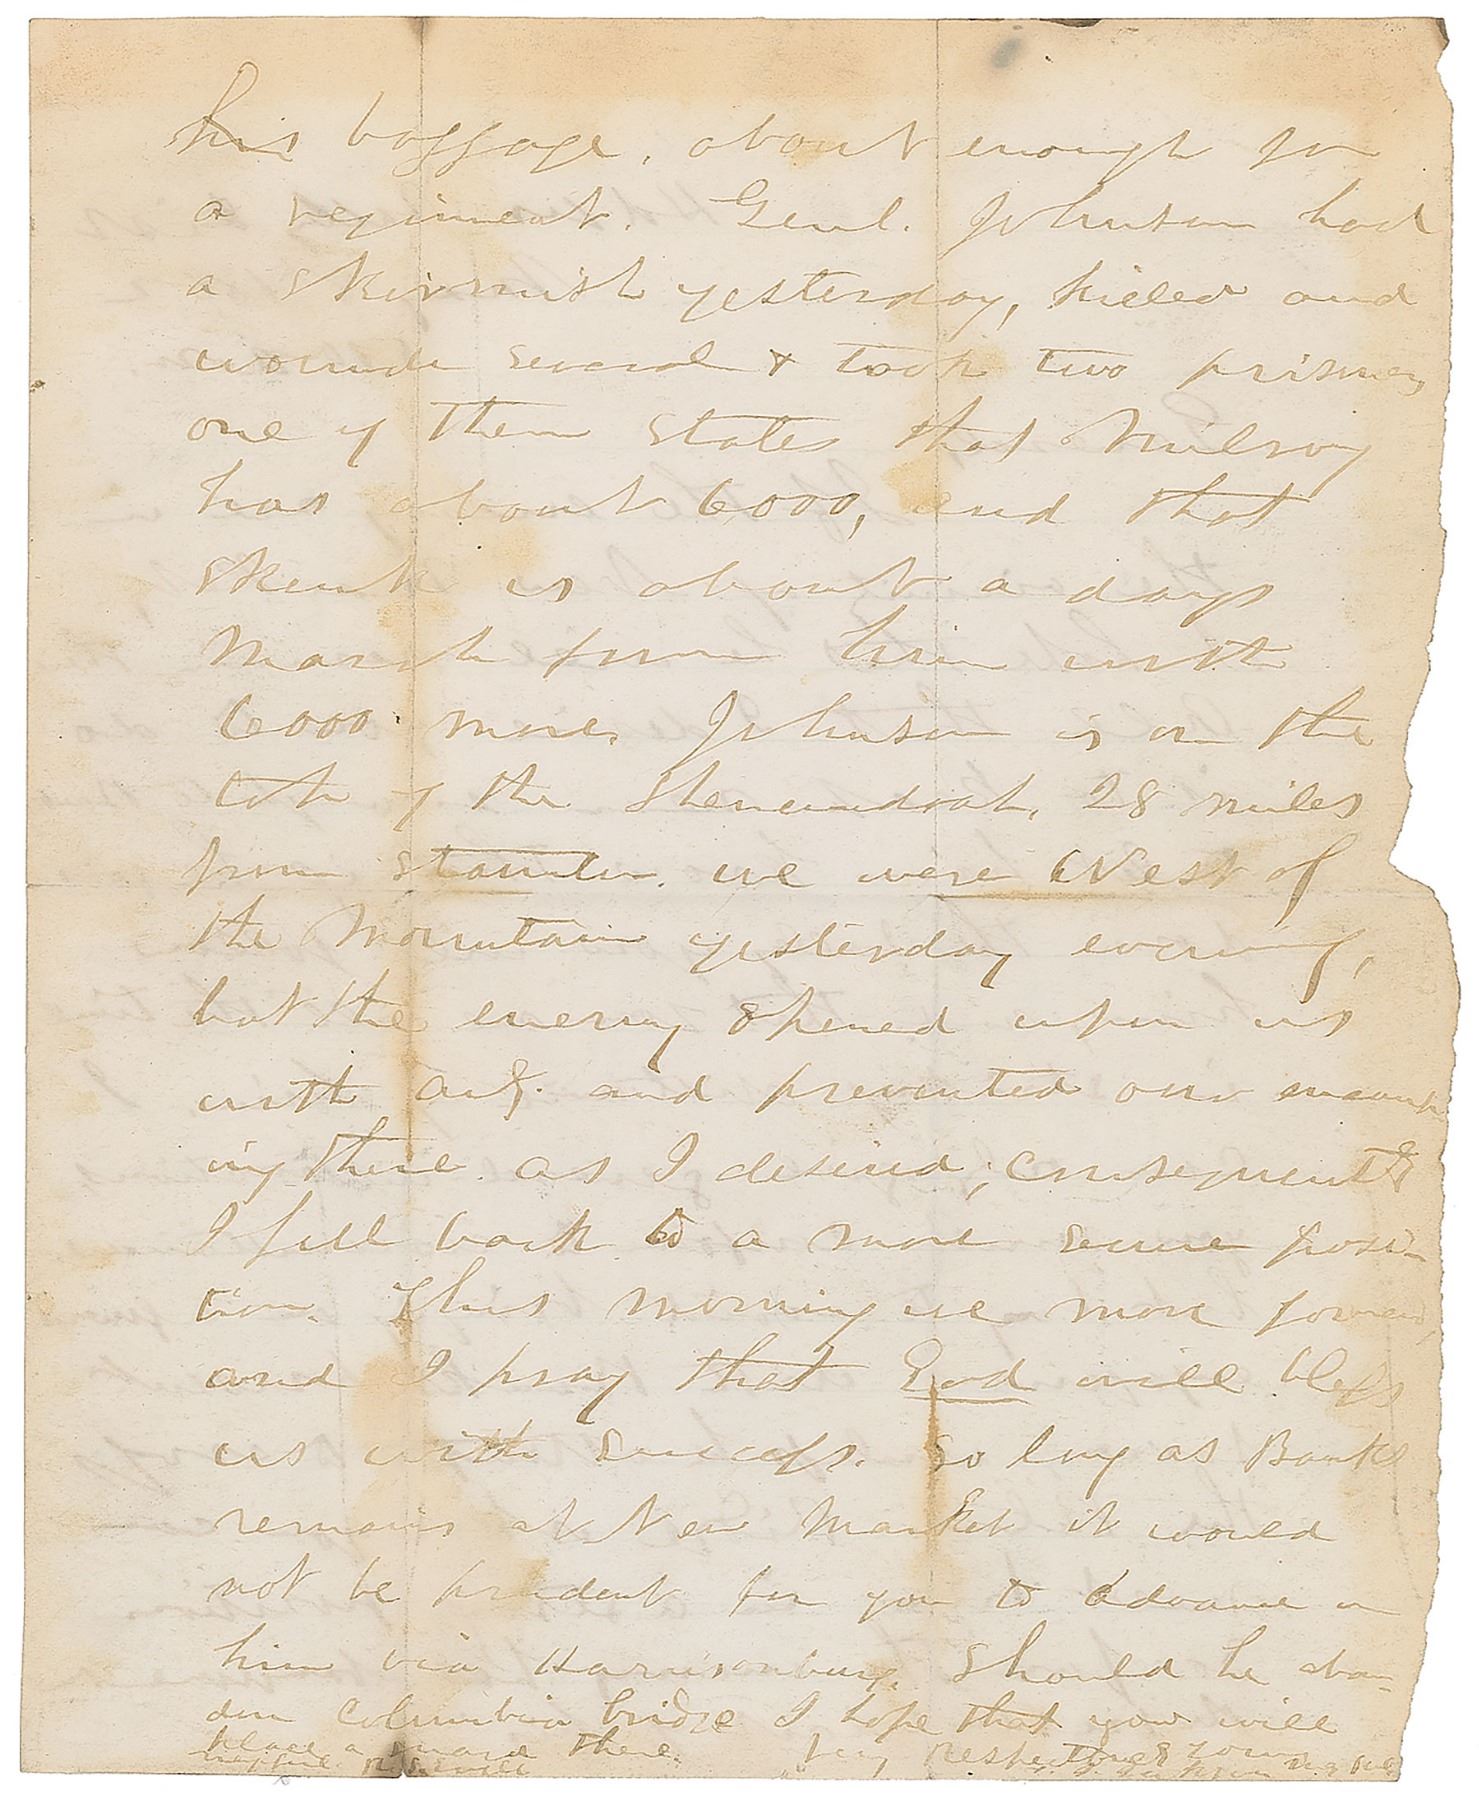 his baggage, about enough for
a regiment. Genl. Johnson had
a skirmish yesterday, killed and
wounde several & took two prisoners
one of them states that Milroy
has about 6000, and that
Skenk is about a days
march from him with
6000 more, Johnson is on the
top of the Shenandoah, 28 miles
from Staunton. we were West of
the Mountain yesterday evening,
but the enemy opened upon us
with art. and prevented our encamp
ing there as I desired; consequently
I fell back to a more secure posi-
tion. This morning we move forward,
and I pray that God will bless
us with success. So long as Banks
remains at New Market it would
not be prudent for you to advance on
him via Harrisonburg. Should he aban-
don Columbia bridge I hope that you will
place a guard there. Very Respectfully yours
Ewell T. J. Jackson Maj Genl